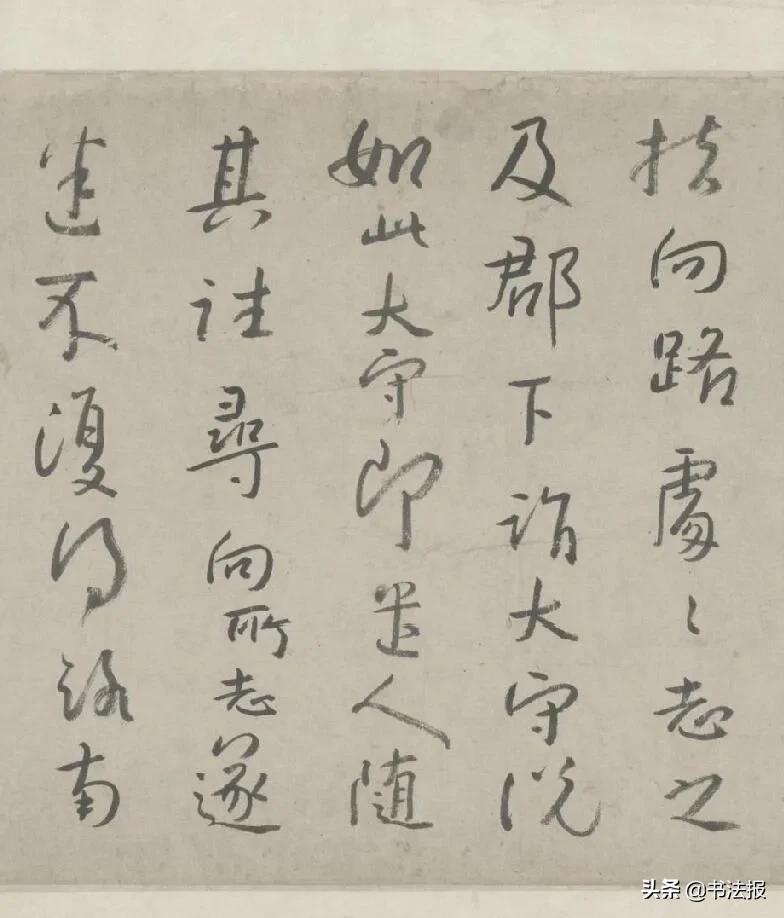 扶向路處〻志之
及郡下詣大守説
如此大守即遣人隨
其往尋向所志遂
迷不復得路南
头条 @书法报